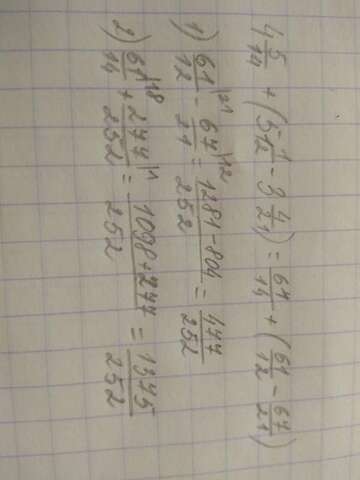 4 5/14 + (5 1/12 - 3 4/21) = 61/14 + (61/12 - 67/21)
1) 61/12|21 - 67/21|12 = 1281-804/252 = 477/252
2) 61/14|18 + 277/252|1 = 1098+277/252 = 1375/252